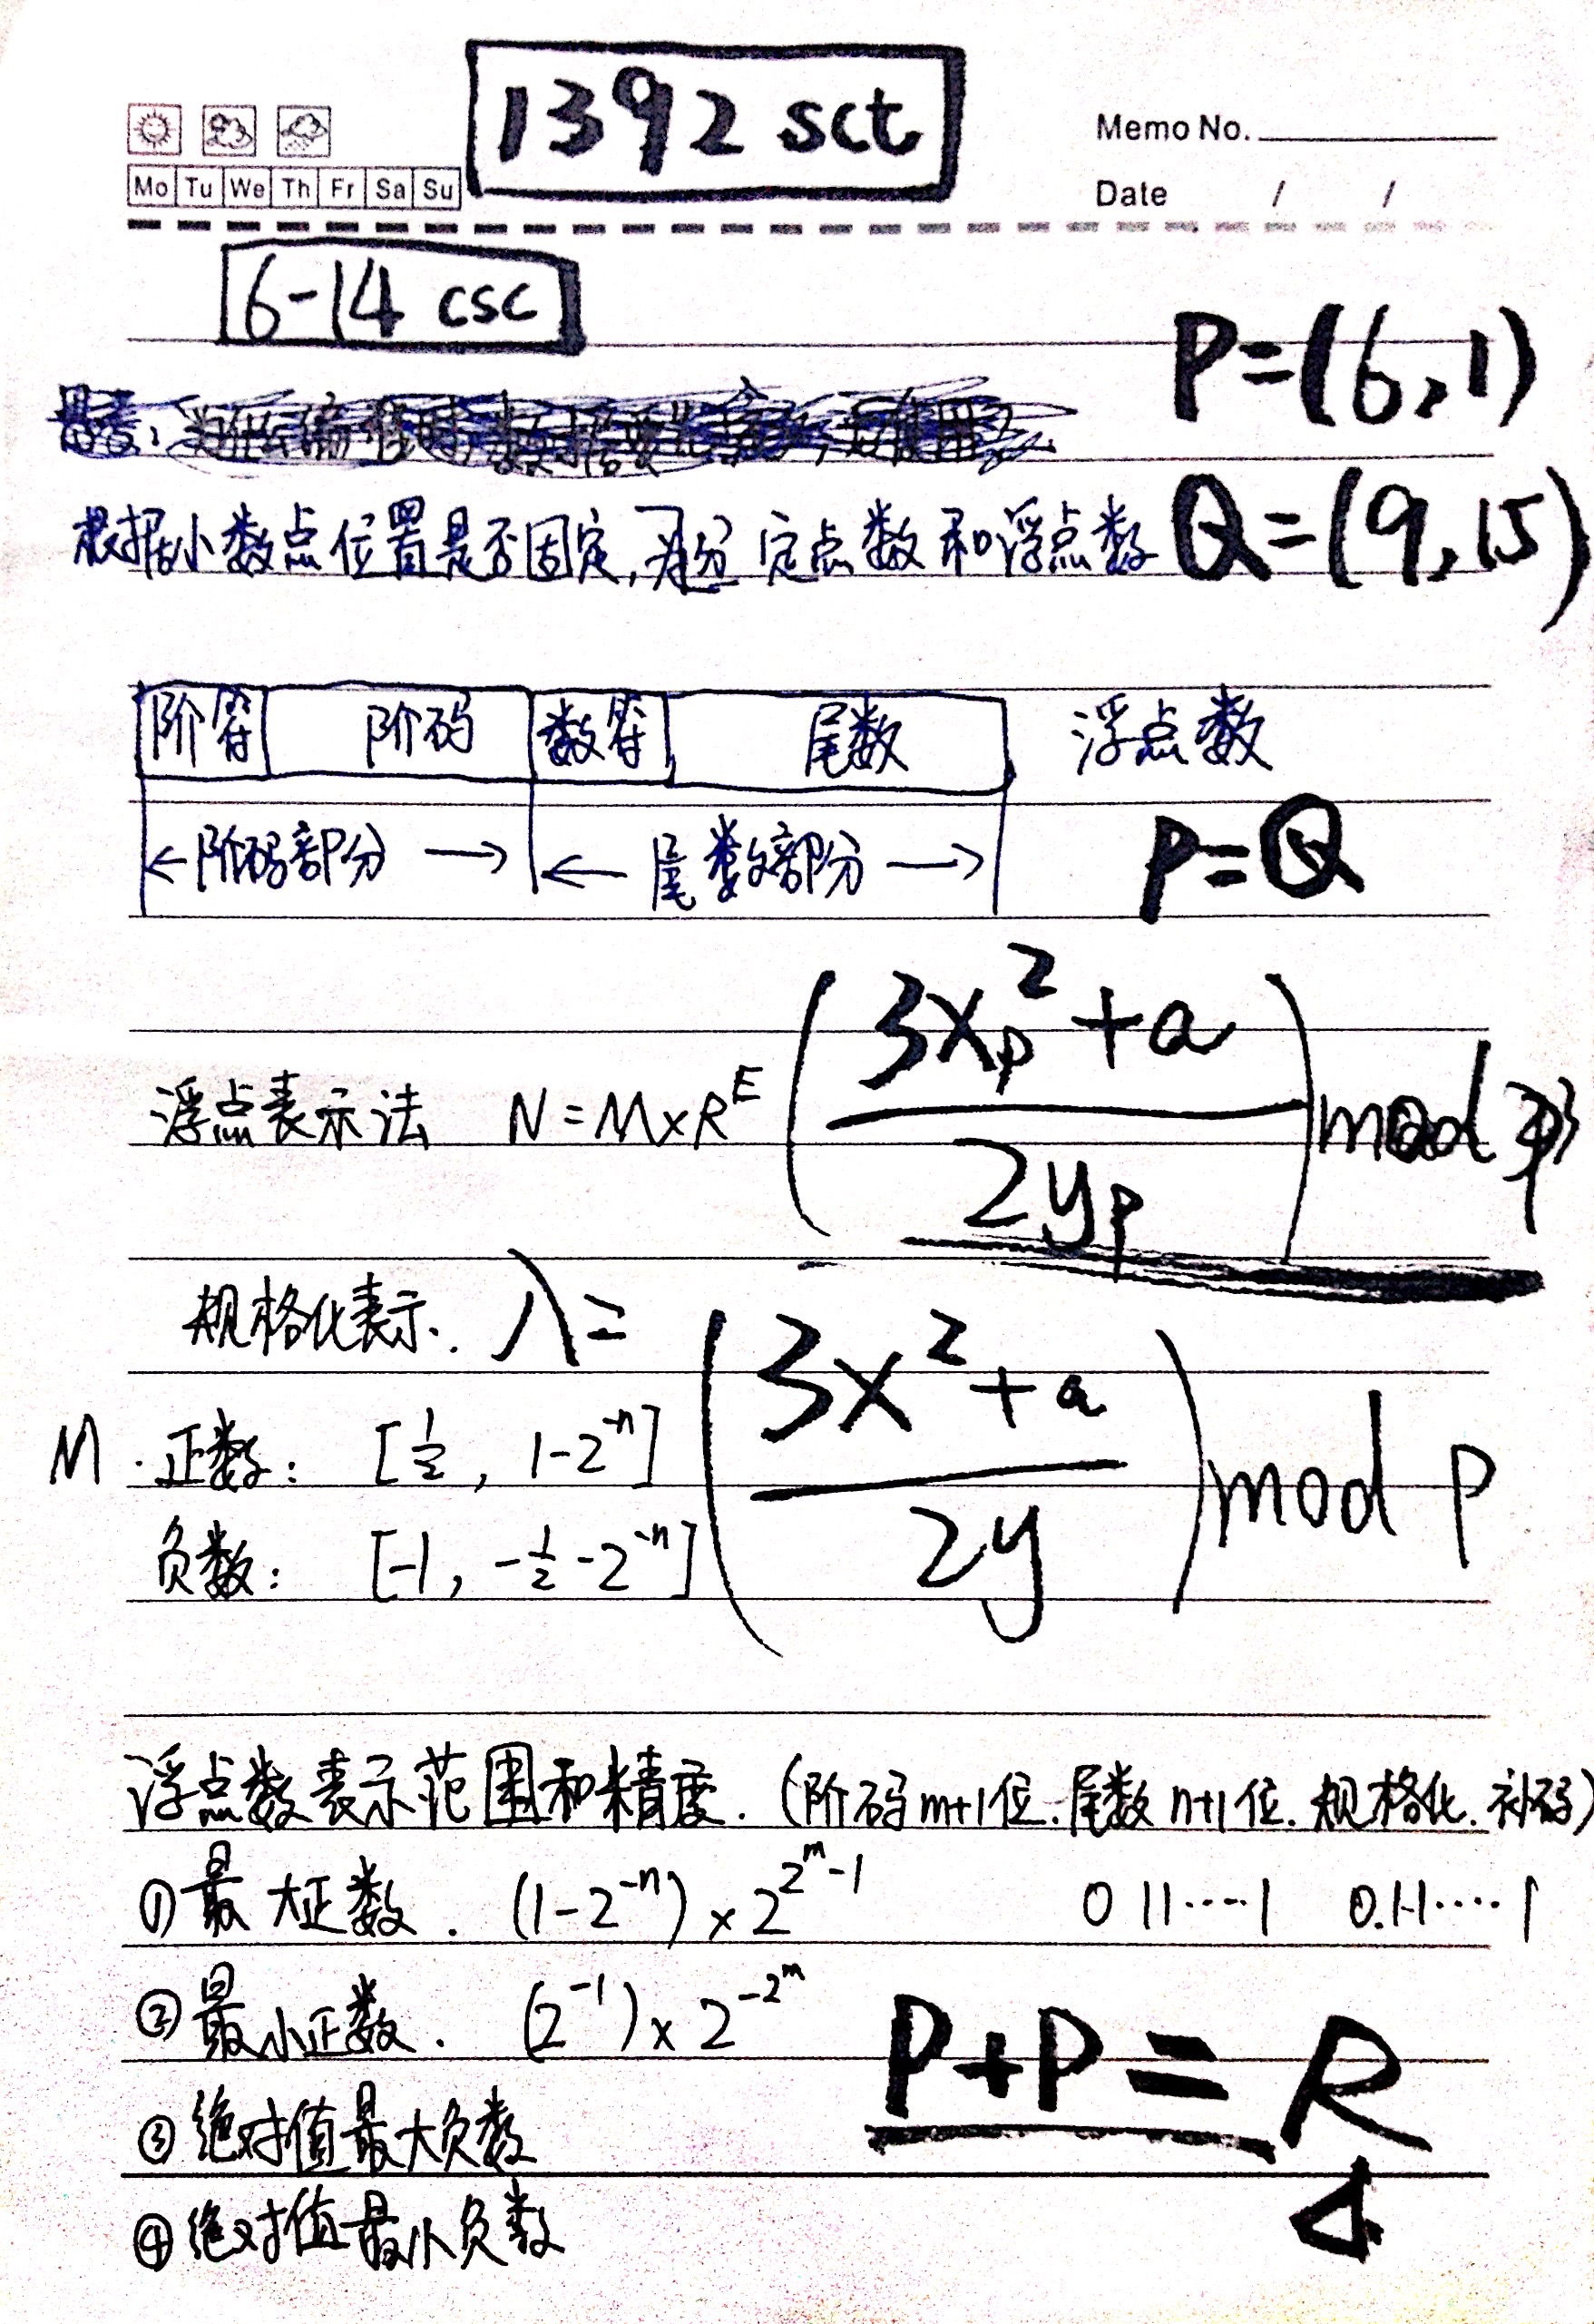 1392 sct
Memo No.
Mo Tu We Th Fr Sa Su
Date / /
6-14 csc
P=(6,1)
根据小数点位置是否固定,分 定点数和浮点数
Q=(9,15)
阶符 阶码 数符 尾数 浮点数
←阶码部分→ ←尾数部分→
P=Q
浮点表示法 N=M×R^E
(3x_p^2+a / 2y_p) mod p
规格化表示.
λ= (3x^2+a / 2y) mod p
M.正数: [1/2, 1-2^-n]
负数: [-1, -1/2-2^-n]
浮点数表示范围和精度.(阶码m+1位.尾数n+1位.规格化.补码)
①最大正数. (1-2^-n)×2^2^m-1 0 11····1 0.11····1
②最小正数. (2^-1)×2^-2^m
P+P=R
③绝对值最大负数
④绝对值最小负数